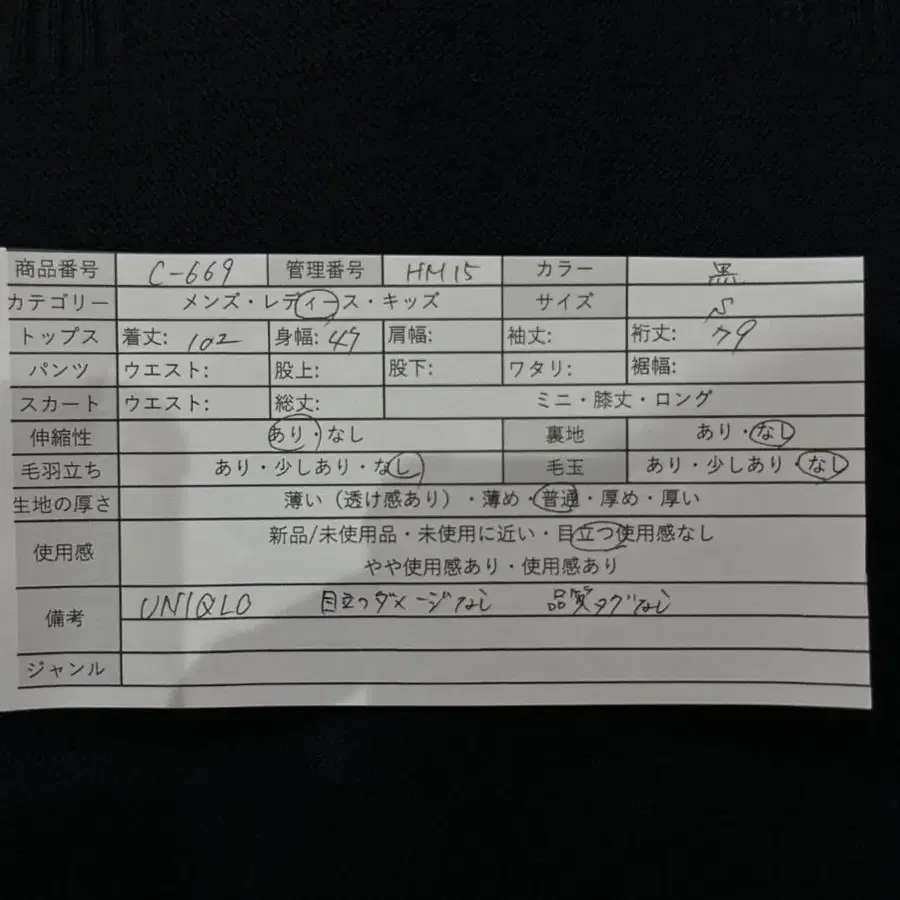 商品番号 C-669 管理番号 HM15 カラー 黒
カテゴリー メンズ・レディース・キッズ サイズ S
トップス 着丈: 102 身幅: 47 肩幅: 袖丈: 裄丈: 79
パンツ ウエスト: 股上: 股下: ワタリ: 裾幅:
スカート ウエスト: 総丈: ミニ・膝丈・ロング
伸縮性 あり・なし 裏地 あり・なし
毛羽立ち あり・少しあり・なし 毛玉 あり・少しあり・なし
生地の厚さ 薄い（透け感あり）・薄め・普通・厚め・厚い
使用感 新品/未使用品・未使用に近い・目立つ使用感なし
やや使用感あり・使用感あり
備考 UNIQLO 目立つダメージなし 品質タグなし
ジャンル